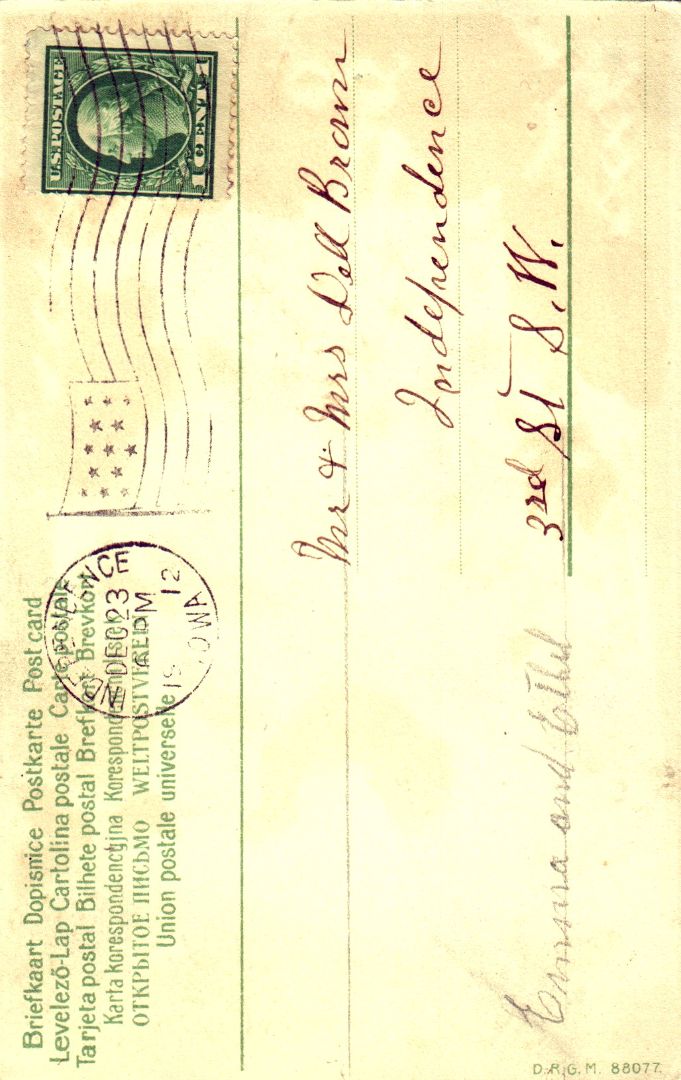 Briefkaart Dopisnice Postkarte Post card
Levelező-Lap Cartolina postale Carte postale
Tarjeta postal Bilhete postal Brefkort Brevkort
Karta korespondencyjna Korespondenční lístek
ОТКРЫТОЕ ПИСЬМО WELTPOSTVEREIN
Union postale universelle
U.S. POSTAGE
1 CENT 1
INDEPENDENCE
DEC 23
PM
1912
IOWA
Mr & Mrs Dell Brown
Independence
3rd St S.W.
Emma and Ethel
D.R.G.M. 88077.